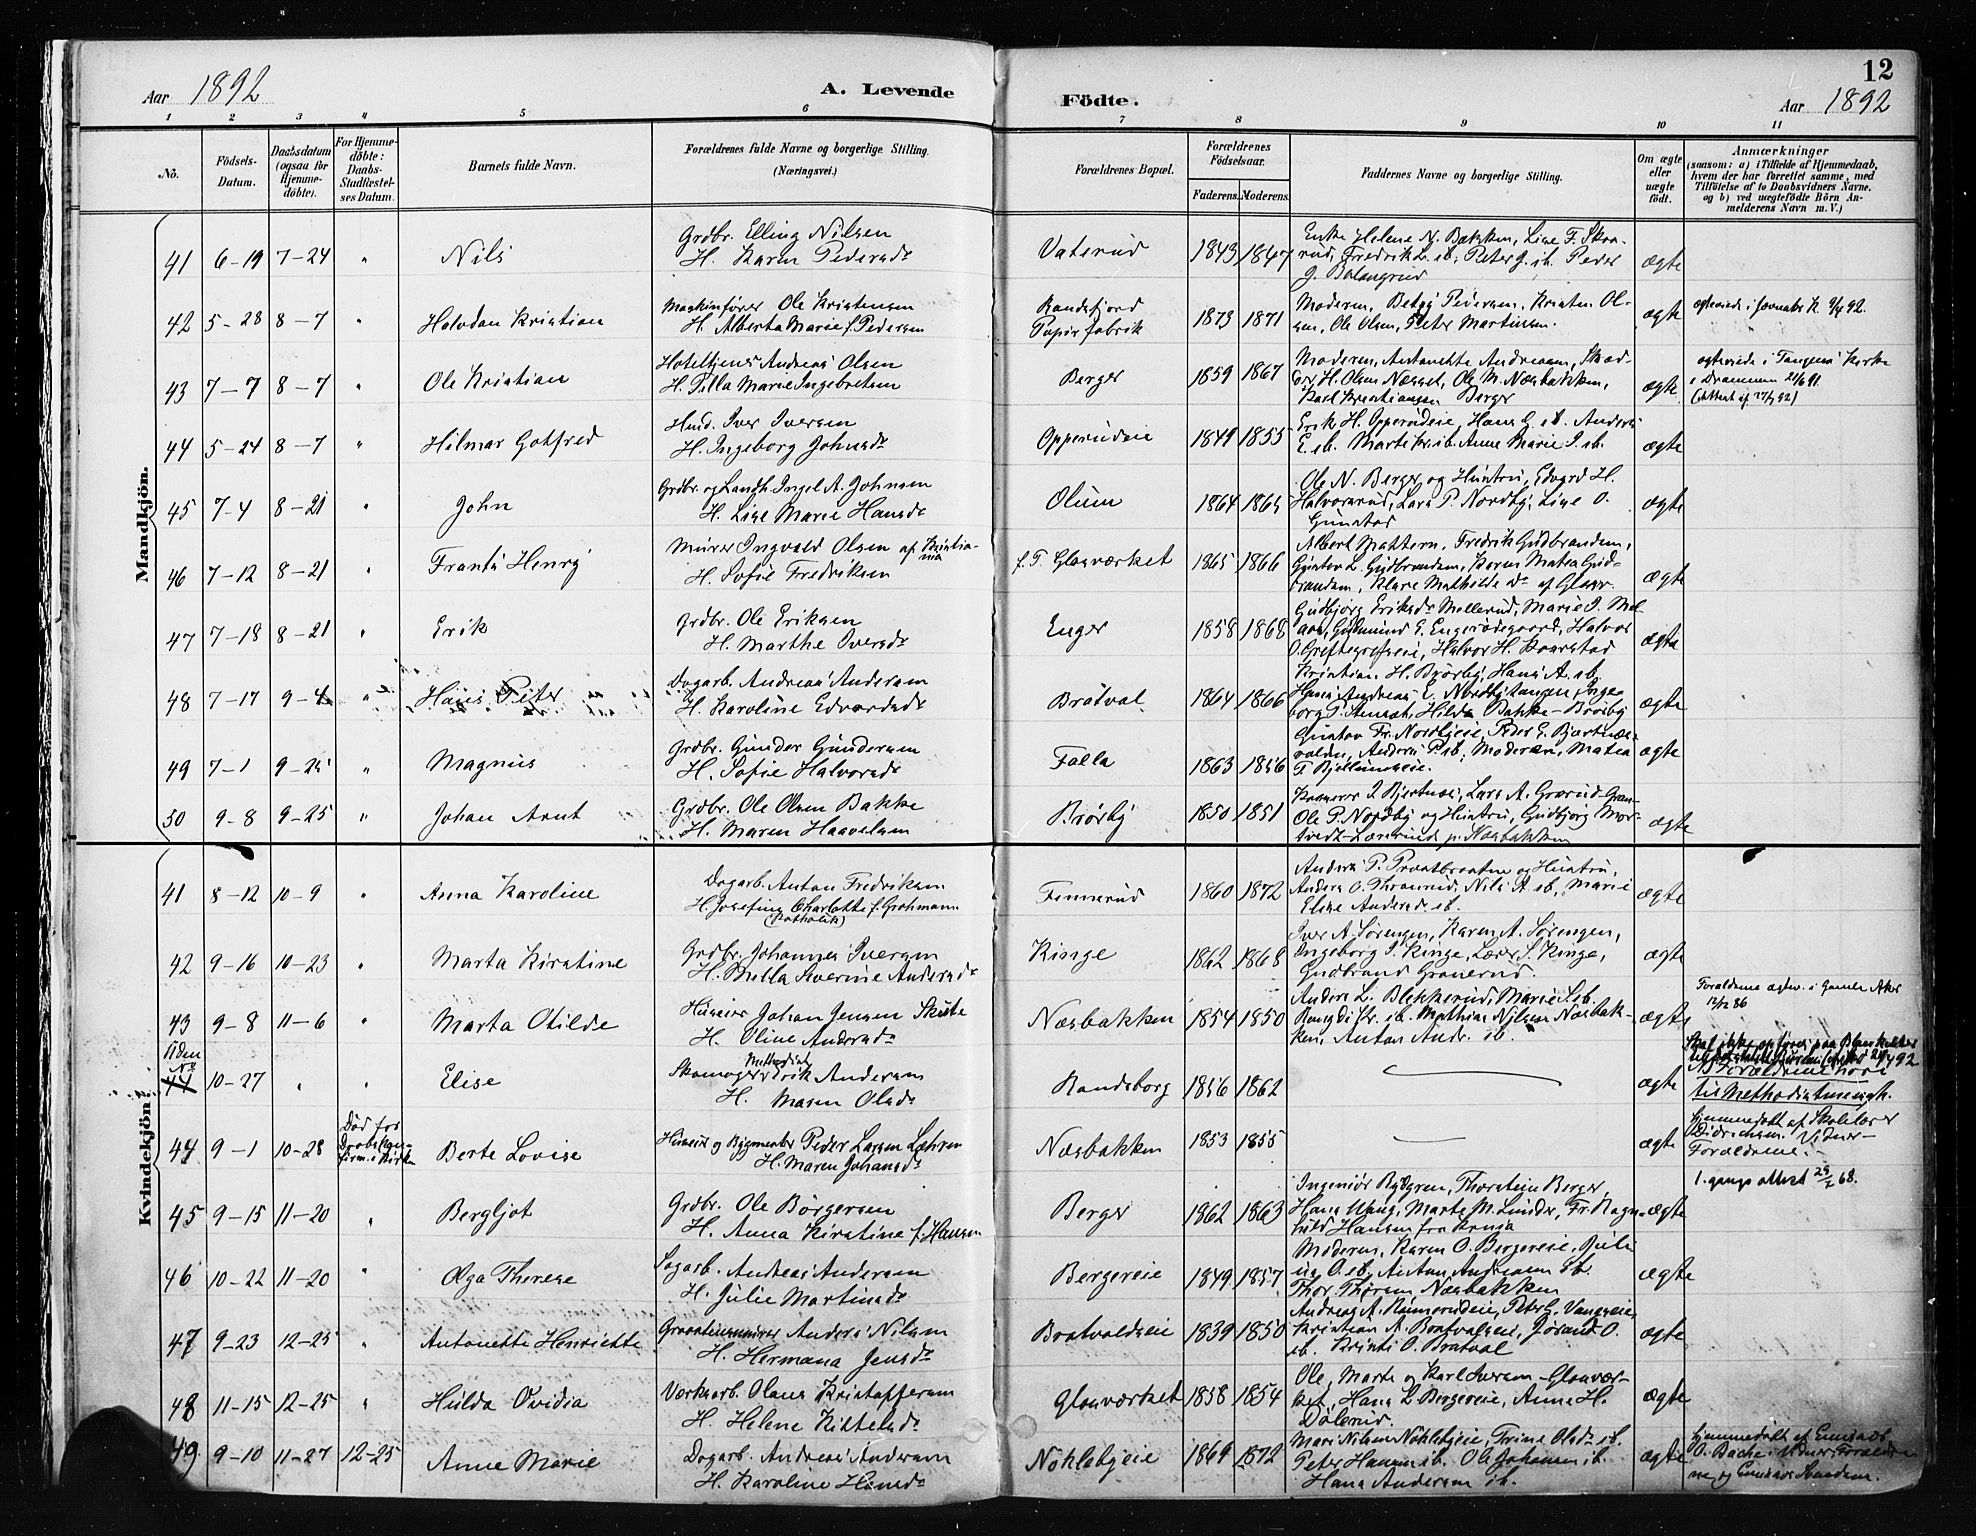 Aar 1892
A. Levende Födte.
12
Aar 1892
1 2 3 4 5 6 7 8 9 10 11
No.
Födsels-Datum.
Daabsdatum (ogsaa for Hjemme-döbte).
For Hjemme-döbte: Daabs-Stadfæstel-ses Datum.
Barnets fulde Navn.
Forældrenes fulde Navne og borgerlige Stilling.
(Næringsvei.)
Forældrenes Bopæl.
Forældrenes Födselsaar.
Faderens. Moderens.
Faddernes Navne og borgerlige Stilling.
Om ægte eller uægte födt.
Anmærkninger
(saasom: a) i Tilfælde af Hjemmedaab, hvem der har forrettet samme, med Tilföielse af to Daabsvidners Navne, og b) ved uægtefödte Börn An-melderens Navn m. V.)
Mandkjön.
41 6-19 7-24 " Nils
Grdbr. Elling Nilsen
H. Karen Pedersdr
Vaterud 1843 1847
Enke Helene N. Bækken, Lise F.
rud, Fredrik L. ib, Peter J. ib. Peder
ægte
42 5-28 8-7 " Halvdan Kristian
Maskinfører Ole Kristensen
H. Alberta Marie f. Pedersen
Randsfjord Papirfabrik 1873 1871
Moderen, Betzy Pedersen, Kristen Ol-
sen, Ole Olsen, Peter Martinsen.
ægte
43 7-7 8-7 " Ole Kristian
Hoteltjener Andreas Olsen
H. Pilla Marie Ingebretsen
Berger 1859 1867
Moderen, Antonette Andreasen, Skræd-
der H. Olsen Næsset, Ole M. Næsbakken,
Karl Kristiansen Berger
ægte
ægteviede i Tangens Kirke
i Drammen 21/6 91.
44 5-24 8-7 " Hilmar Gotfred
Husm. Iver Iversen
H. Ingeborg Johnsdr
Opperudeie 1849 1855
Erik H. Opperudeie, Hans G. ib. Anders
E. ib. Anne Marie I. ib.
ægte
45 7-4 8-21 " John
Grdbr. og Landh. Ingel A. Johnsen
H. Lise Marie Hansdr
Olum 1864 1865
Ole N. Berger og Hustru, Edvard H.
Halvorsrud, Lars P. Nordby, Lise O.
ægte
46 7-12 8-21 " Frants Henry
Murer Ingvald Olsen af Kristiania
H. Sofie Fredriksen
f. T. Glasværket 1865 1866
Albert Mattern, Fredrik Gudbrandsen,
Gustav L. Gudbrandsen, Karen Matea Gud-
brandsen, Klara Mathilde
ægte
47 7-18 8-21 " Erik
Grdbr. Ole Eriksen
H. Marthe Iversdr
Enger 1858 1868
Gudbjørg Eriksdr Mellerud, Marie I.
Gudmund E. Engerødegaard, Halvor
Halvor H. Kaarstad
ægte
48 7-17 9-4 " Hans Peter
Dagarb. Andreas Andersen
H. Karoline Edvardsdr
Bratval 1864 1866
Kristian H. Brørby, Hans A. ib.
Hans Andreas E. Nordbytangen, Inge-
borg P. Hilda Bakke-Brørby
ægte
49 7-1 9-25 " Magnus
Grdbr. Gunder Gundersen
H. Sofie Halvorsdr
Falla 1863 1856
Gustav Fr. Nordbyeie, Peder G.
Anders P. ib, Moderen, Matea
ægte
50 9-8 9-25 " Johan Arnt
Grdbr. Ole Olsen Bakke
H. Maren Haavelsen
Brørby 1850 1851
Ole P. Nordby og Hustru, Gudbjørg
ægte
Kvindekjön.
41 8-12 10-9 " Anna Karoline
Dagarb. Anton Fredriksen
H. Josefine Charlotte f. Grohmann
(Katholik)
Finnerud 1860 1872
Anders P. og Hustru,
Anders O. Nils A. ib, Marie
Elise Andersd. ib.
ægte
42 9-16 10-23 " Marta Kirstine
Grdbr. Johannes Iversen
H. Mella Severine Andersdr
Kinge 1862 1868
Iver A. Sørengen, Karen A. Sørengen,
Ingeborg I. Kinge, Lars S. Kinge,
Gudbrand Granerud.
ægte
43 9-8 11-6 " Marta Otilde
Huseier Johan Jensen Skute
H. Oline Andersdr
Næsbakken 1854 1850
Anders L. Blekkerud, Marie S. ib.
ib. Mathias Nilsen Næsbak-
ken, Anton Andr. ib.
ægte
Forældrene ægtev. i Gamle Aker
12/12 86
Uden No 44 10-27 " " Elise
Skomager Erik Andersen
Methodist
H. Maren Olsdr
Randsborg 1856 1862
ægte
Forældrene hører
til Methodistmenigh.
44 9-1 10-28
Død før Daabskon-firm. i Kirken
Berte Lovise
Huseier og Bygmester Peder Larsen Læhren
H. Maren Johansdr
Næsbakken 1853 1855
ægte
Hjemmedøbt af Skolelærer
Didrichsen. Vidner-
Forældrene.
45 9-15 11-20 " Bergljot
Grdbr. Ole Børgersen
H. Anna Kirstine f. Hansen
Berger 1862 1863
Ingeniør Thorstein Berger,
Hans Wang, Marte M. Linder, Fr. Ragn-
hild Hansen
ægte
1. gangs attest
46 10-22 11-20 " Olga Therese
Dagarb. Andreas Andersen
H. Julie Martinsdr
Bergereie 1849 1857
Moderen, Karen O. Bergereie,
O. ib, Anton Andreasen ib.
Thor Thorsen Næsbakken
ægte
47 9-23 12-25 " Antonette Henriette
Anders Nilsen
H. Hermana Jensdr
Bratvaldseie 1839 1850
Andreas A. Rønnerudeie, Peter L.
Kristian A. Bratvalseie, Jørand O.
ib. Kristi O. Bratval
ægte
48 11-15 12-25 " Hulda Ovidia
Værksarb. Olaus Kristoffersen
H. Helene Kittelsdr
Glasværket 1858 1854
Ole, Marte og Karl Iversen-Glasvær-
ket, Hans L. Bergereie, Anne H.
Dølerud.
ægte
49 9-10 11-27 12-25 Anne Marie
Dagarb. Andreas Andersen
H. Karoline Hansdr
Nøklebyeie 1869 1872
Mari Nilsen Nøklebyeie, Trine Olsdr ib.
Peter Hansen ib. Ole Johansen ib.
Hans Andersen ib.
ægte
Hjemmedøbt af